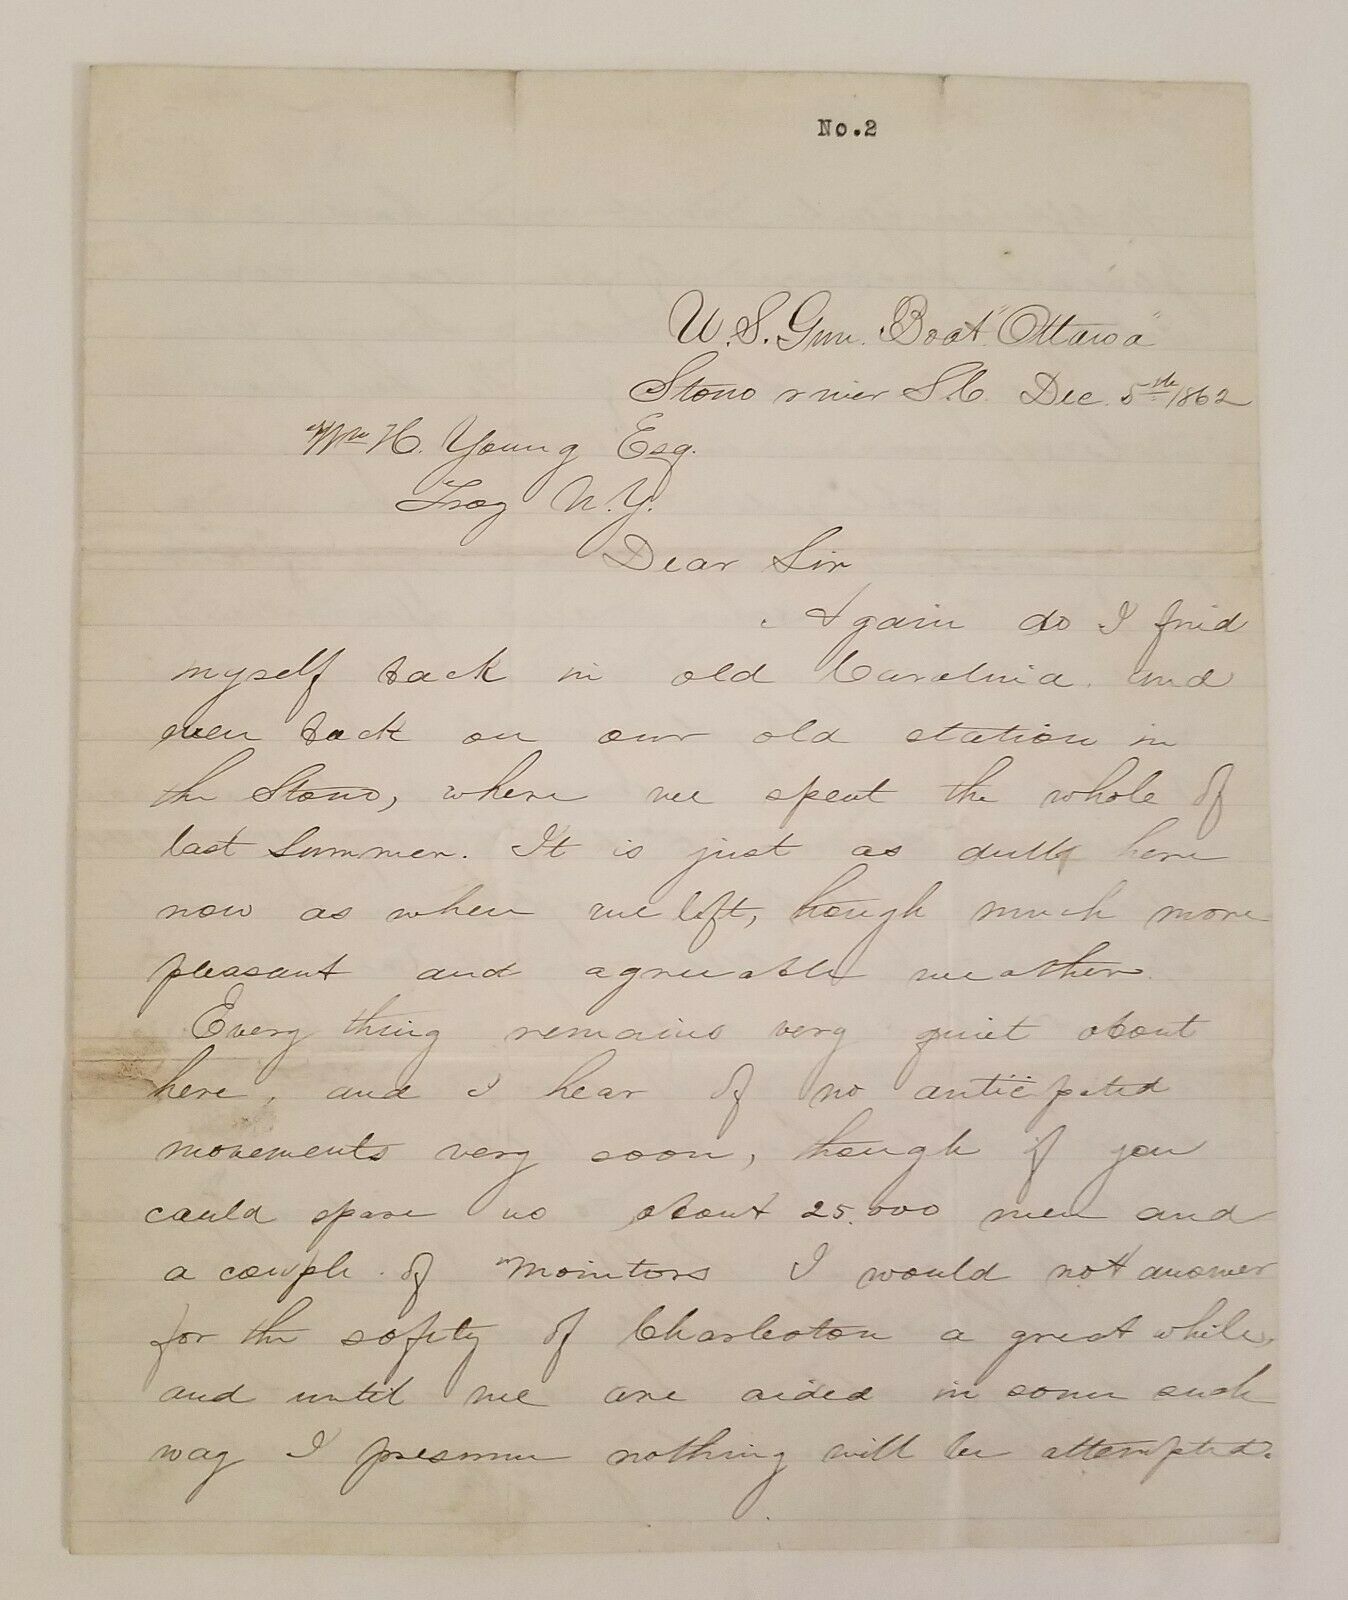 No.2
U.S. Gun. Boat "Ottawa"
Stono river S.C. Dec. 5th 1862
Wm H. Young Esq.
Troy N.Y.
Dear Sir
Again do I find
myself back in old Carolina. and
even back on our old station in
the Stono, where we spent the whole of
last Summer. It is just as dull here
now as when we left, though much more
pleasant and agreeable weather.
Every thing remains very quiet about
here, and I hear of no anticipated
movements very soon, though if you
could spare us about 25.000 men and
a couple of "Monitors I would not answer
for the safety of Charleston a great while,
and until we are aided in some such
way I presume nothing will be attempted.